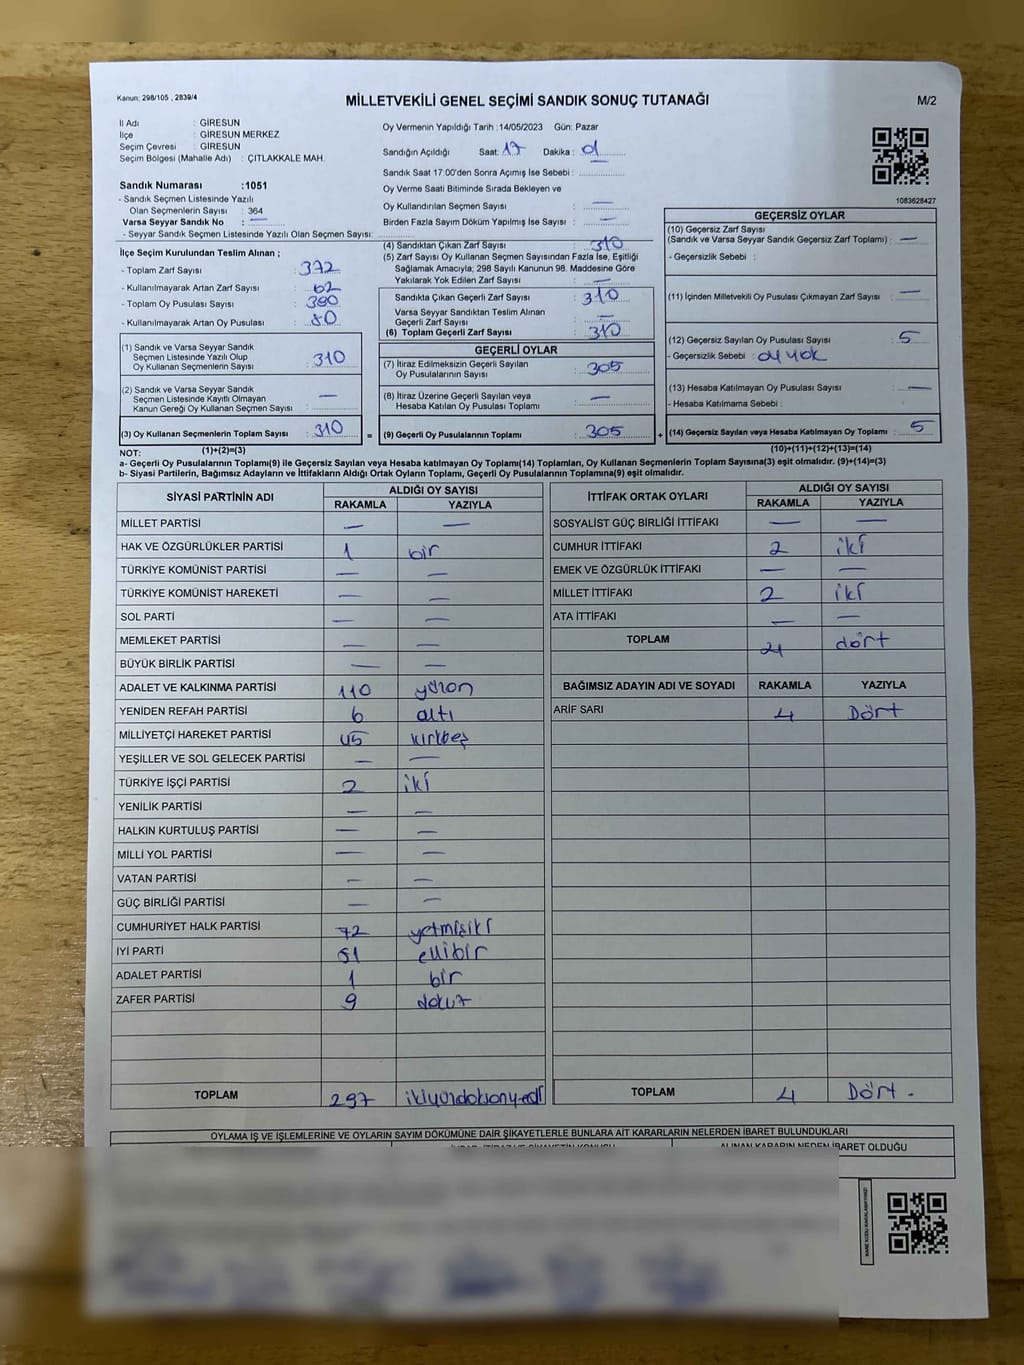 Kanun; 298/105 , 2839/4
MİLLETVEKİLİ GENEL SEÇİMİ SANDIK SONUÇ TUTANAĞI
M/2
İl Adı : GİRESUN
İlçe : GİRESUN MERKEZ
Seçim Çevresi : GİRESUN
Seçim Bölgesi (Mahalle Adı) : ÇITLAKKALE MAH.
Sandık Numarası :1051
- Sandık Seçmen Listesinde Yazılı
Olan Seçmenlerin Sayısı : 364
Varsa Seyyar Sandık No : —
- Seyyar Sandık Seçmen Listesinde Yazılı Olan Seçmen Sayısı:
Oy Vermenin Yapıldığı Tarih :14/05/2023 Gün: Pazar
Sandığın Açıldığı Saat: 17 Dakika :
Sandık Saat 17:00'den Sonra Açımış İse Sebebi :
Oy Verme Saati Bitiminde Sırada Bekleyen ve
Oy Kullandırılan Seçmen Sayısı : —
Birden Fazla Sayım Döküm Yapılmış İse Sayısı : —
1083628427
İlçe Seçim Kurulundan Teslim Alınan ;
- Toplam Zarf Sayısı : 372
- Kullanılmayarak Artan Zarf Sayısı : 62
- Toplam Oy Pusulası Sayısı : 390
- Kullanılmayarak Artan Oy Pusulası : 80
(1) Sandık ve Varsa Seyyar Sandık
Seçmen Listesinde Yazılı Olup
Oy Kullanan Seçmenlerin Sayısı : 310
(2) Sandık ve Varsa Seyyar Sandık
Seçmen Listesinde Kayıtlı Olmayan
Kanun Gereği Oy Kullanan Seçmen Sayısı : —
(3) Oy Kullanan Seçmenlerin Toplam Sayısı : 310
(4) Sandıktan Çıkan Zarf Sayısı : 310
(5) Zarf Sayısı Oy Kullanan Seçmen Sayısından Fazla İse, Eşitliği
Sağlamak Amacıyla; 298 Sayılı Kanunun 98. Maddesine Göre
Yakılarak Yok Edilen Zarf Sayısı : —
Sandıkta Çıkan Geçerli Zarf Sayısı : 310
Varsa Seyyar Sandıktan Teslim Alınan
Geçerli Zarf Sayısı : —
(6) Toplam Geçerli Zarf Sayısı : 310
GEÇERLİ OYLAR
(7) İtiraz Edilmeksizin Geçerli Sayılan
Oy Pusulalarının Sayısı : 305
(8) İtiraz Üzerine Geçerli Sayılan veya
Hesaba Katılan Oy Pusulası Toplamı : —
= (9) Geçerli Oy Pusulalarının Toplamı : 305
GEÇERSİZ OYLAR
(10) Geçersiz Zarf Sayısı
(Sandık ve Varsa Seyyar Sandık Geçersiz Zarf Toplamı) : —
- Geçersizlik Sebebi :
(11) İçinden Milletvekili Oy Pusulası Çıkmayan Zarf Sayısı : —
(12) Geçersiz Sayılan Oy Pusulası Sayısı : 5
- Geçersizlik Sebebi : oy yok
(13) Hesaba Katılmayan Oy Pusulası Sayısı : —
- Hesaba Katılmama Sebebi :
+ (14) Geçersiz Sayılan veya Hesaba Katılmayan Oy Toplamı : 5
NOT: (1)+(2)=(3)
(10)+(11)+(12)+(13)=(14)
a- Geçerli Oy Pusulalarının Toplamı(9) ile Geçersiz Sayılan veya Hesaba katılmayan Oy Toplamı(14) Toplamları, Oy Kullanan Seçmenlerin Toplam Sayısına(3) eşit olmalıdır. (9)+(14)=(3)
b- Siyasi Partilerin, Bağımsız Adayların ve İttifakların Aldığı Ortak Oyların Toplamı, Geçerli Oy Pusulalarının Toplamına(9) eşit olmalıdır.
SİYASİ PARTİNİN ADI ALDIĞI OY SAYISI
RAKAMLA YAZIYLA
MİLLET PARTİSİ — —
HAK VE ÖZGÜRLÜKLER PARTİSİ 1 bir
TÜRKİYE KOMÜNİST PARTİSİ — —
TÜRKİYE KOMÜNİST HAREKETİ — —
SOL PARTİ — —
MEMLEKET PARTİSİ — —
BÜYÜK BİRLİK PARTİSİ — —
ADALET VE KALKINMA PARTİSİ 110 yüzon
YENİDEN REFAH PARTİSİ 6 altı
MİLLİYETÇİ HAREKET PARTİSİ 45 kırkbeş
YEŞİLLER VE SOL GELECEK PARTİSİ — —
TÜRKİYE İŞÇİ PARTİSİ 2 iki
YENİLİK PARTİSİ — —
HALKIN KURTULUŞ PARTİSİ — —
MİLLİ YOL PARTİSİ — —
VATAN PARTİSİ — —
GÜÇ BİRLİĞİ PARTİSİ — —
CUMHURİYET HALK PARTİSİ 72 yetmişiki
İYİ PARTİ 51 ellibir
ADALET PARTİSİ 1 bir
ZAFER PARTİSİ 9 dokuz
TOPLAM 297 ikiyüzdoksanyedi
İTTİFAK ORTAK OYLARI ALDIĞI OY SAYISI
RAKAMLA YAZIYLA
SOSYALİST GÜÇ BİRLİĞİ İTTİFAKI — —
CUMHUR İTTİFAKI 2 iki
EMEK VE ÖZGÜRLÜK İTTİFAKI — —
MİLLET İTTİFAKI 2 iki
ATA İTTİFAKI — —
TOPLAM 4 dört
BAĞIMSIZ ADAYIN ADI VE SOYADI RAKAMLA YAZIYLA
ARİF SARI 4 Dört
TOPLAM 4 Dört .
OYLAMA İŞ VE İŞLEMLERİNE VE OYLARIN SAYIM DÖKÜMÜNE DAİR ŞİKAYETLERLE BUNLARA AİT KARARLARIN NELERDEN İBARET BULUNDUKLARI
ALINAN KARARIN NEDEN İBARET OLDUĞU